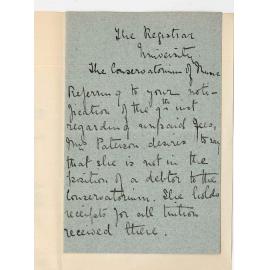 The Registrar
University
The Conservatorium of Music
Referring to your noti-
fication of the 9th inst
regarding unpaid fees,
Mrs Paterson desires to say
that she is not in the
position of a debtor to the
Conservatorium. She holds
receipts for all tuition
received there.